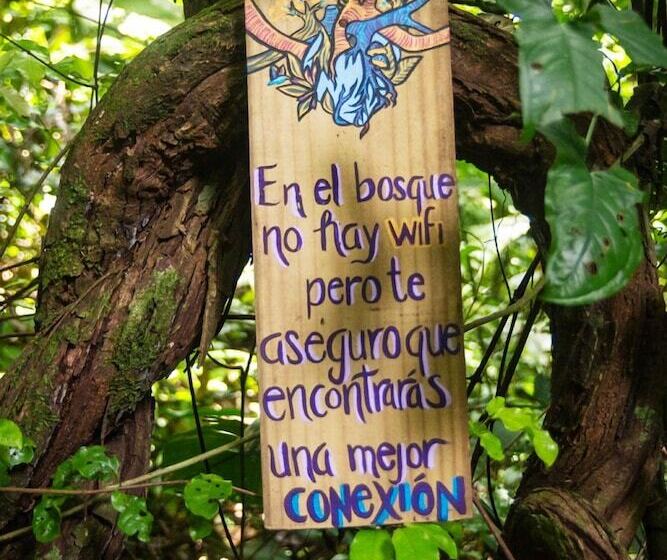 En el bosque
no hay wifi
pero te
aseguro que
encontrarás
una mejor
CONEXIÓN